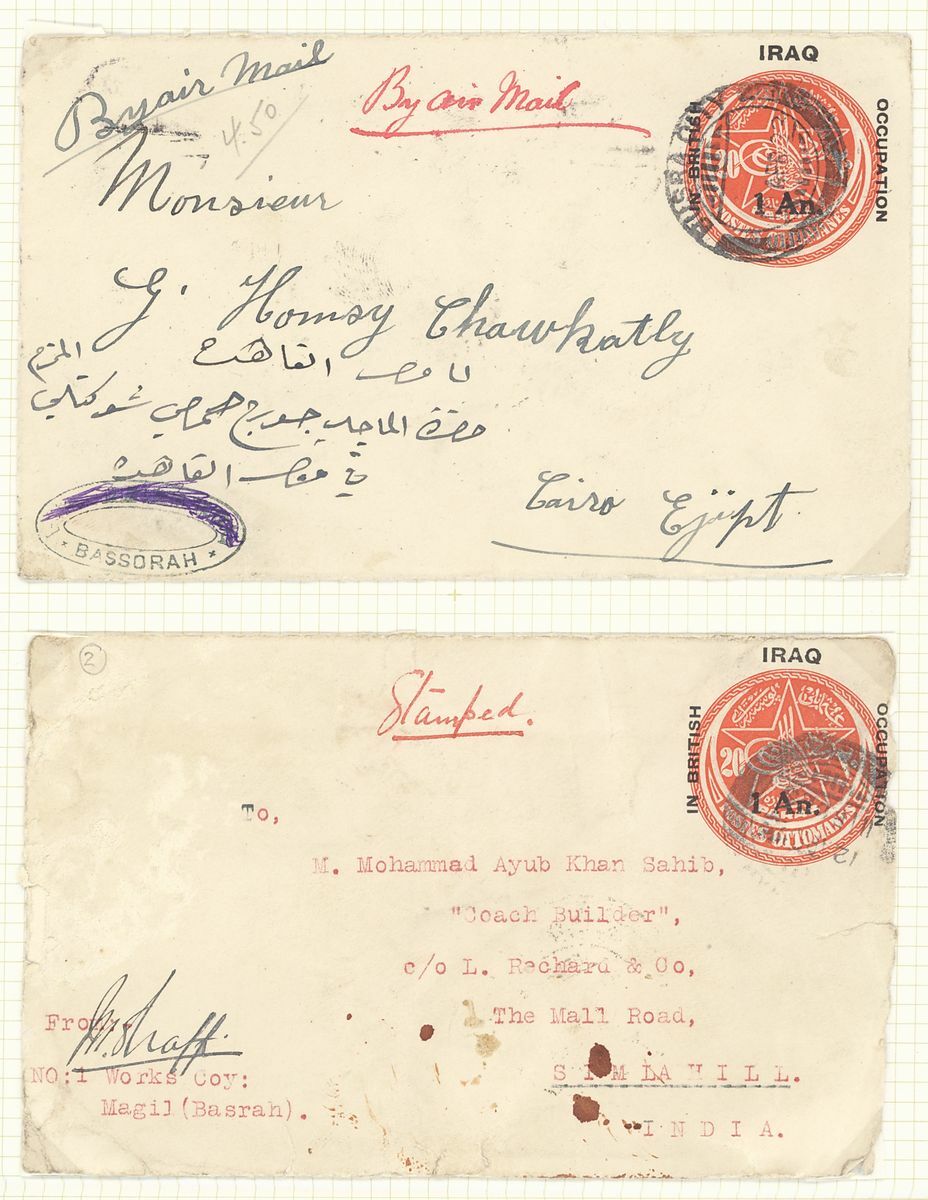 IRAQ
IN BRITISH
OCCUPATION
By air Mail
By air Mail
4.50
20
1 An.
POSTES OTTOMANES
Monsieur
G. Homsy Chawkatly
القاهرة
جورج حمصي شوكتلي
في مصر القاهرة
Cairo Ejipt
BASSORAH
2
IRAQ
IN BRITISH
OCCUPATION
Stamped.
20
1 An.
POSTES OTTOMANES
12
To,
M. Mohammad Ayub Khan Sahib,
"Coach Builder",
c/o L. Rechard & Co,
The Mall Road,
SIMLA HILL.
INDIA.
From:-
NO:1 Works Coy:
Magil(Basrah).